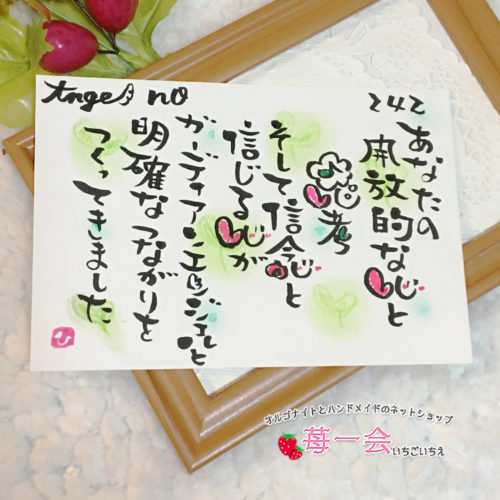 Angel no 242
あなたの
開放的な心と
思考
そして信念と
信じる心が
ガーディアンエンジェルと
明確なつながりを
つくってきました
オルゴナイトとハンドメイドのネットショップ
苺一会いちごいちえ